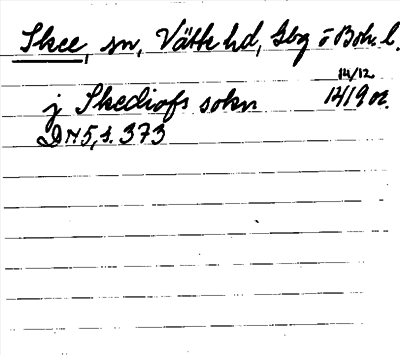 Skee, sn, Vätte hd, Gbg o Boh. l.
14/12
j Skediofs sokn 1419 or.
DN 5, s. 373